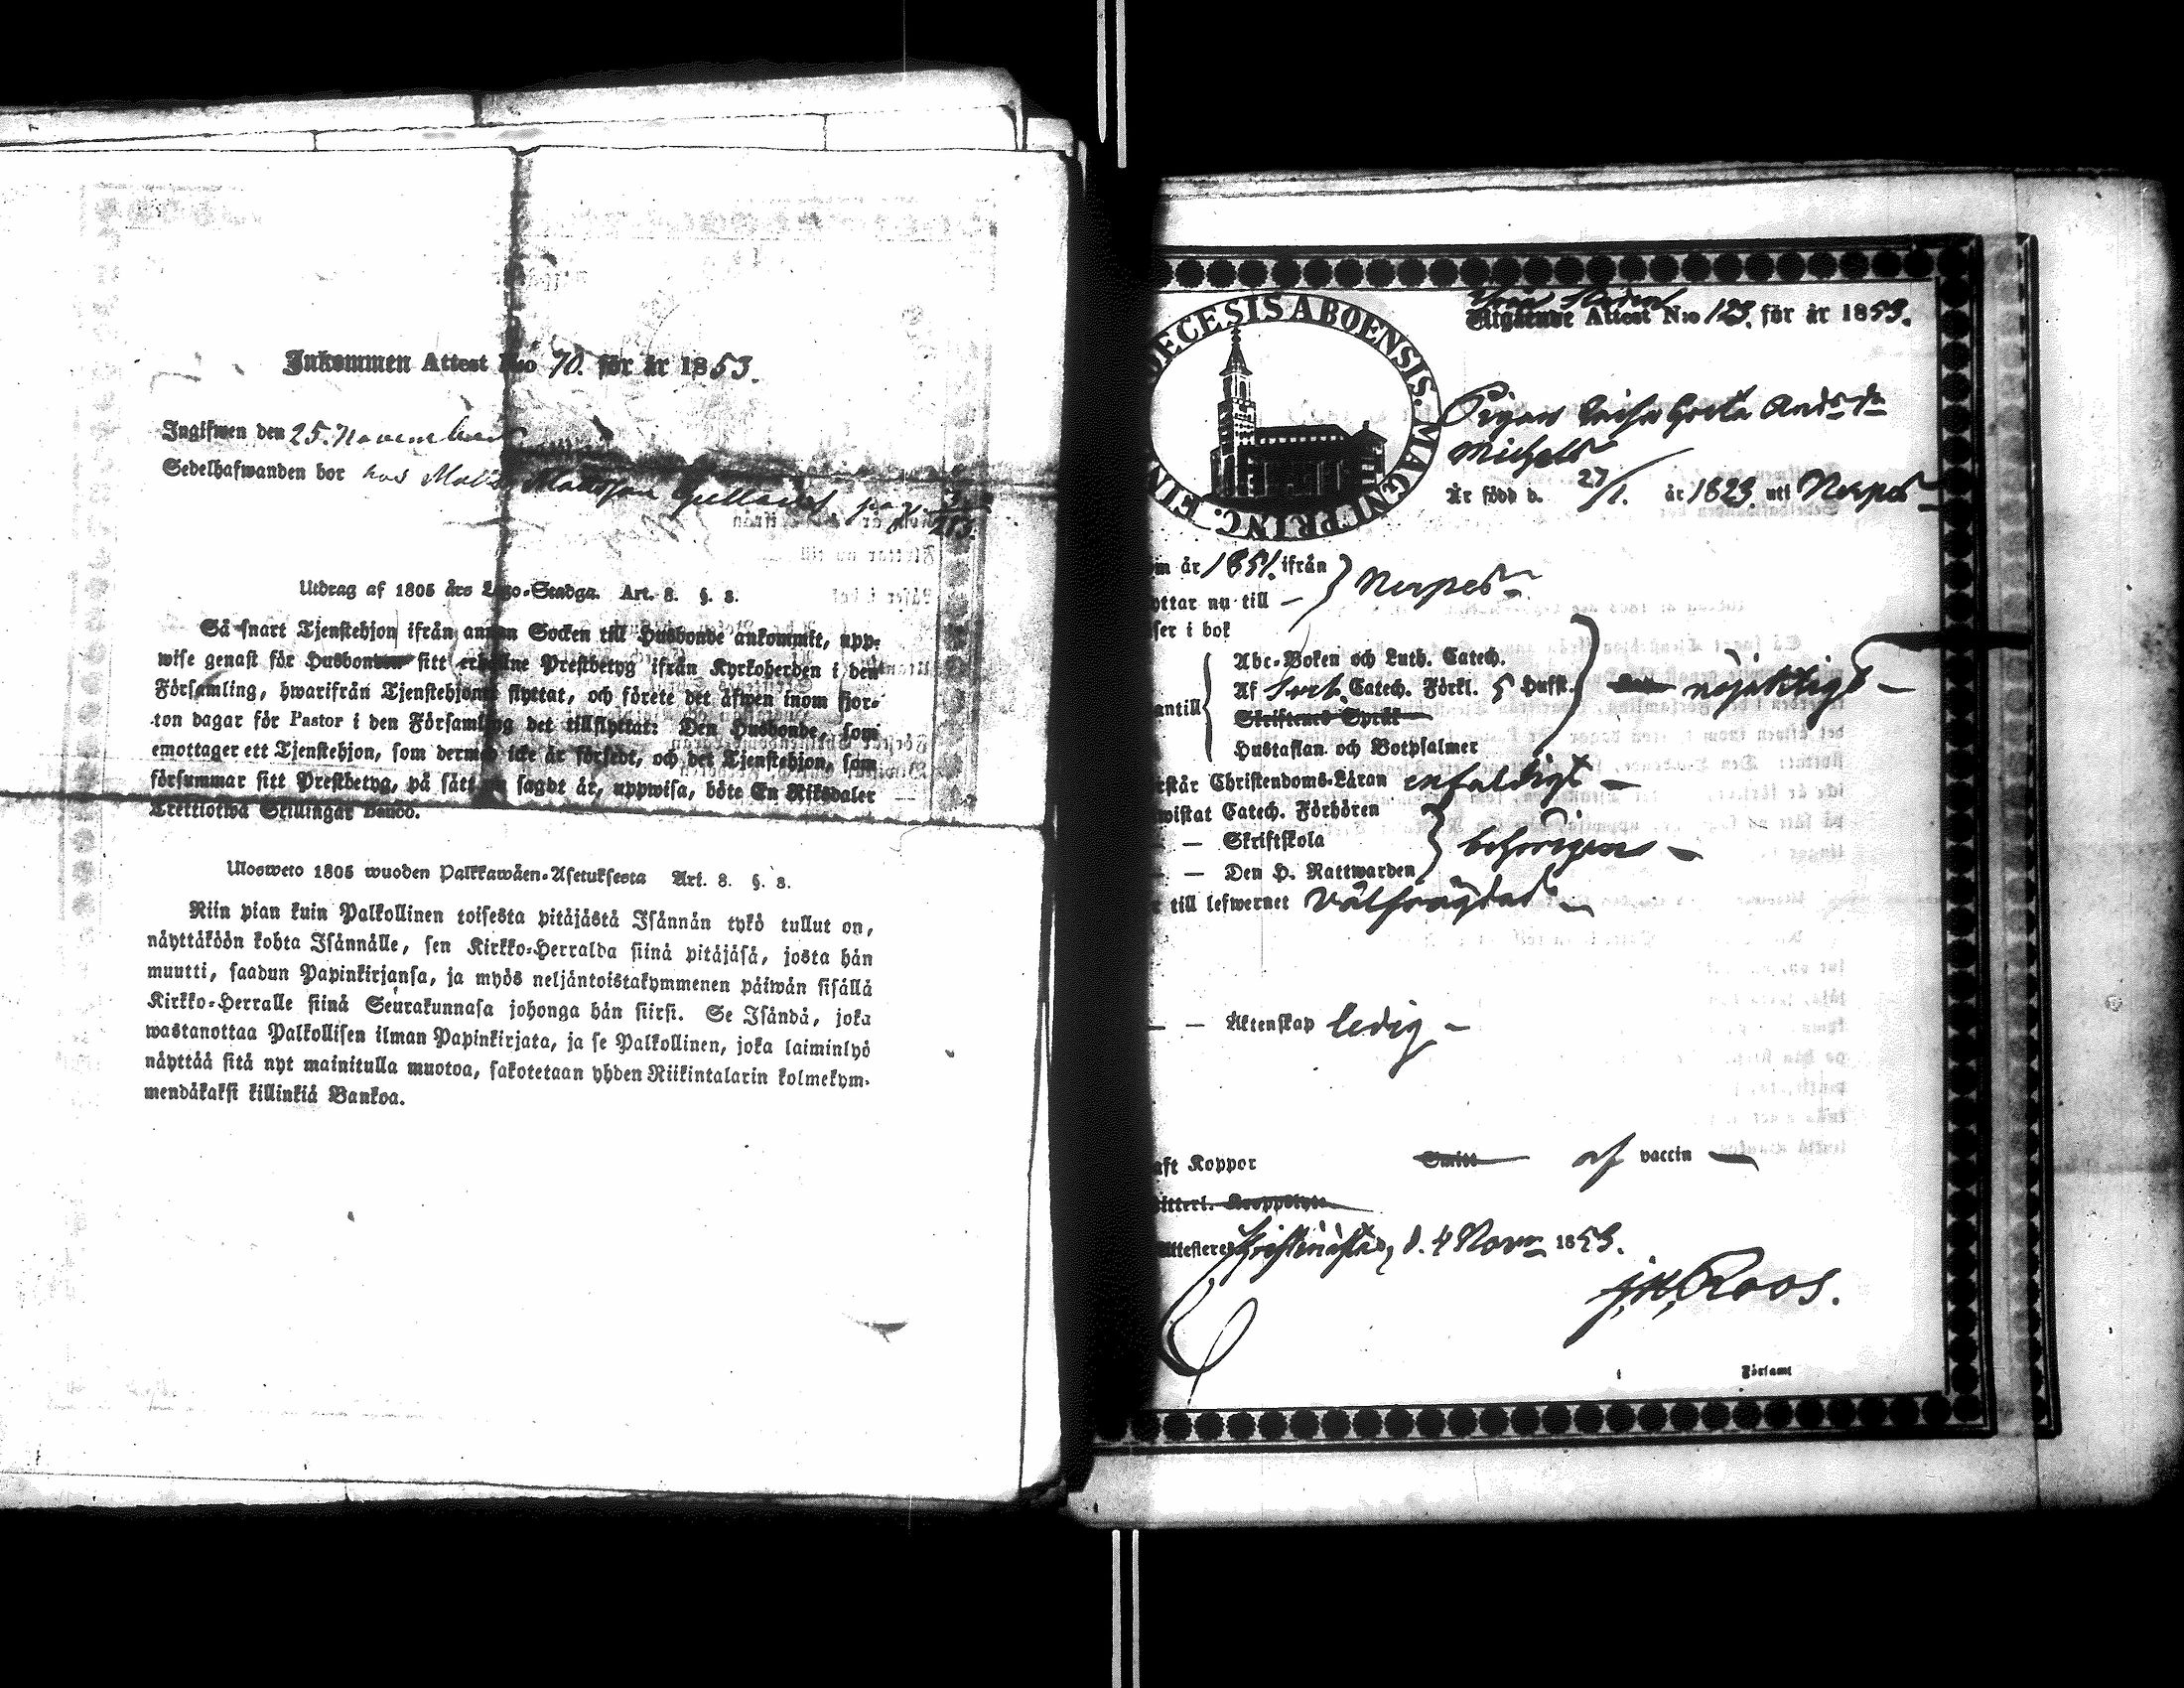 Inkommen Attest N:o 70. för år 1853.
Ingifwen den 25. November
Sedelhafwanden bor hos Matts Mattsson
Utdrag af 1805 års Lego-Stadga. Art. 8. §. 8.
Så snart Tjenstehjon ifrån annan Socken till Husbonde ankommit, upp-
wise genast för Husbonden sitt erhållne Prestbetyg ifrån Kyrkoherden i den
Församling, hwarifrån Tjenstehjonet flyttat, och förete det äfwen inom fjor-
ton dagar för Pastor i den Församling det tillflyttat: Den Husbonde, som
emottager ett Tjenstehjon, som dermed icke är försedt, och det Tjenstehjon, som
försummar sitt Prestbetyg, på sätt nu sagdt är, uppwisa, böte En Riksdaler
Trettiotwå Skillingar Banco.
Ulosweto 1805 wuoden Palkkawäen-Asetuksesta Art. 8. §. 8.
Niin pian kuin Palkollinen toisesta pitäjästä Isännän tykö tullut on,
näyttäköön kohta Isännälle, sen Kirkko-Herralda siinä pitäjäsä, josta hän
muutti, saadun Papinkirjansa, ja myös neljäntoistakymmenen päiwän sisällä
Kirkko-Herralle siinä Seurakunnasa johonga hän siirsi. Se Isändä, joka
wastanottaa Palkollisen ilman Papinkirjata, ja se Palkollinen, joka laiminlyö
näyttää sitä nyt mainitulla muotoa, sakotetaan yhden Riikintalarin kolmekym-
mendäkaksi killinkiä Bankoa.
DECESIS ABOENSIS. MAGNI PRINC. FIN
från staden
Utgående Attest N:o 123. för år 1853.
Pigan Caisa Greta Andsdr
Michels
Är född d. 27/1. år 1823 uti Nerpes
om år 1851. ifrån
yttar nu till — } Nerpes
ser i bok
Abc-Boken och Luth. Catech.
Af Catech. Förkl. 5 Hufst.
antill Skriftenes Språk nöjaktigt —
Hustaflan och Botpsalmer
rstår Christendoms-Läran enfaldigt —
wistat Catech. Förhören
— Skriftskola } behörigen —
— Den H. Nattwarden
r till lefwernet välfrägdad —
— — Äktenskap ledig —
aft Koppor Smitt af vaccin —
itterl. Kroppslyte
Attesterer Christinæstad, d. 4 Novr 1853.
J. H. Roos.
Församl